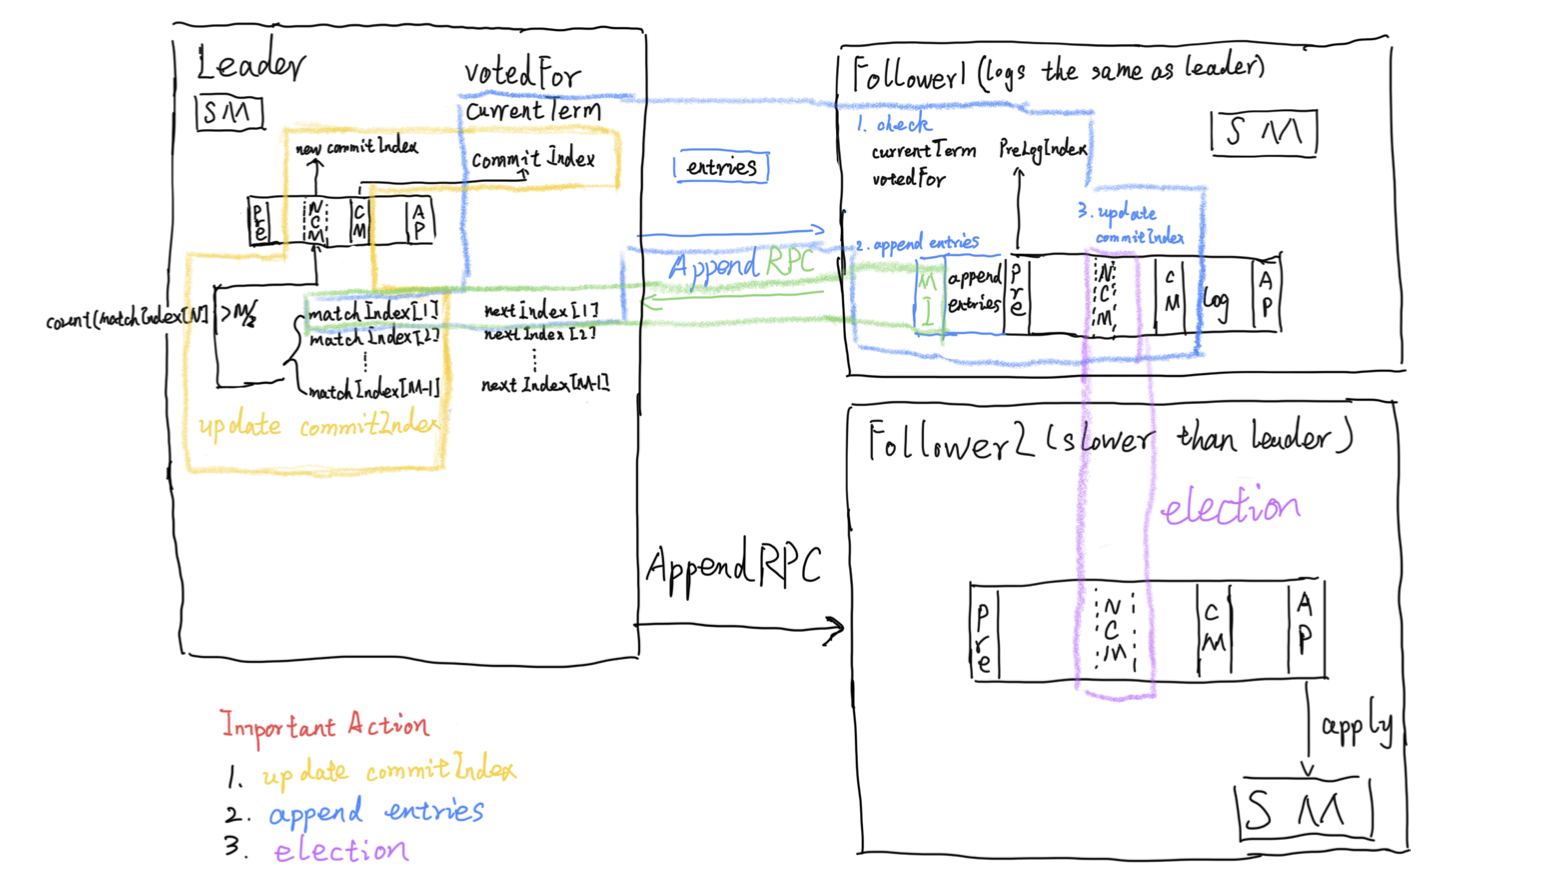 Leader
SM
votedFor
CurrentTerm
commitIndex
new commitIndex
Pre
NCM
CM
AP
count(matchIndex[N]
>M/2
matchIndex[1]
matchIndex[2]
matchIndex[M-1]
nextIndex[1]
nextIndex[2]
nextIndex[M-1]
update commitIndex
entries
Append RPC
AppendRPC
Follower1 (logs the same as leader)
SM
1. check
currentTerm
votedFor
PreLogIndex
2. append entries
3. update
commitIndex
MI
append
entries
Pre
NCM
CM
log
AP
Follower2 (slower than leader)
election
Pre
NCM
CM
AP
apply
SM
Important Action
1. update commitIndex
2. append entries
3. election